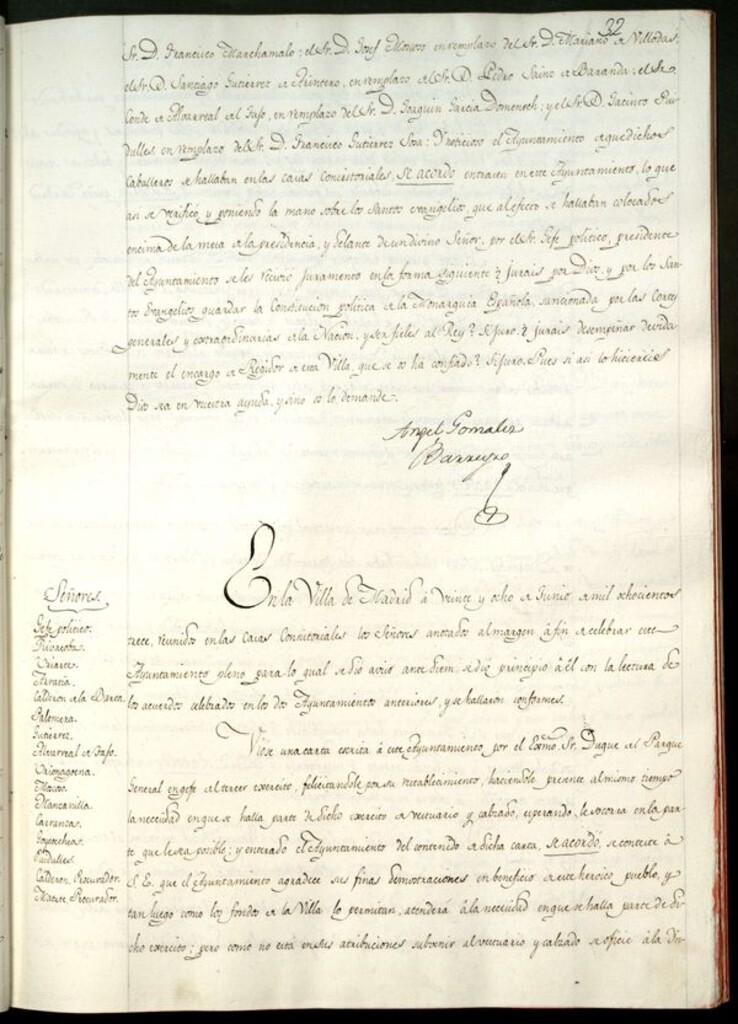 32
Sr. D. Francisco Marchamalo; el Sr. D. Josef Moyoso en remplazo del Sr. D. Mariano de Villodas,
el Sr. D. Santiago Gutierrez de Quintero, en remplazo del Sr. D. Pedro Sainz de Baranda; el Sr.
Conde de Alvarreal del Tajo, en remplazo del Sr. D. Joaquin Garcia Domenech; y el Sr. D. Jacinto Rui
dalles en remplazo del Sr. D. Francisco Gutierrez Sosa: Y noticioso el Ayuntamiento de que dichos
Caballeros se hallaban en las casas Consistoriales, se acordó entrasen en este Ayuntamiento, lo que
asi se verificó, y poniendo la mano sobre los Santos evangelios, que al efecto se hallaban colocados
encima de la mesa de la presidencia, y delante de un divino Señor, por el Sr. Gefe politico, presidente
del Ayuntamiento se les recivió juramento en la forma siguiente ¿Jurais por Dios, y por los San-
tos Evangelios guardar la Constitucion politica de la Monarquia Española, sancionada por las Cortes
generales y extraordinarias de la Nacion, y ser fieles al Rey? Si juro. ¿Jurais desempeñar devida
mente el encargo de Regidor de esta Villa, que se os há confiado? Si juro. Pues si asi lo hiciereis
Dios sea en vuestra ayuda, y sino os lo demande.
Angel Gonzalez
Barreyro
En la Villa de Madrid á veinte y ocho de Junio de mil ochocientos
trece, reunidos en las Casas Consistoriales los Señores anotados al margen á fin de celebrar este
Ayuntamiento pleno para lo qual se dio aviso ante diem, se dio principio á él con la lectura de
los acuerdos celebrados en los dos Ayuntamientos anteriores, y se hallaron conformes.
Viose una carta escrita á este Ayuntamiento por el Exmo. Sr. Duque del Parque
General en gefe del tercer exercito, felicitandole por su restablecimiento, haciendole presente al mismo tiempo
la necesidad en que se halla parte de dicho exercito de vestuario y calzado, esperando, le socorra en la par-
te que le sea posible; y enterado el Ayuntamiento del contenido de dicha carta, se acordó, se conteste á
S. E. que el Ayuntamiento agradece sus finas demostraciones en beneficio de este heroico pueblo, y
tan luego como los fondos de la Villa lo permitan, atenderá á la necesidad en que se halla parte de di-
cho exercito; pero como no está en sus atribuciones subvenir al vestuario y calzado se oficie á la Di-
Señores.
Gefe politico.
Rivacoba.
Uriarte.
Arratia.
Calderon de la Barca.
Palomera.
Gutierrez.
Alvarreal de Tajo.
Goyocochea.
Manzanilla.
Carranza.
Calderon, Procurador.
Matute, Procurador.